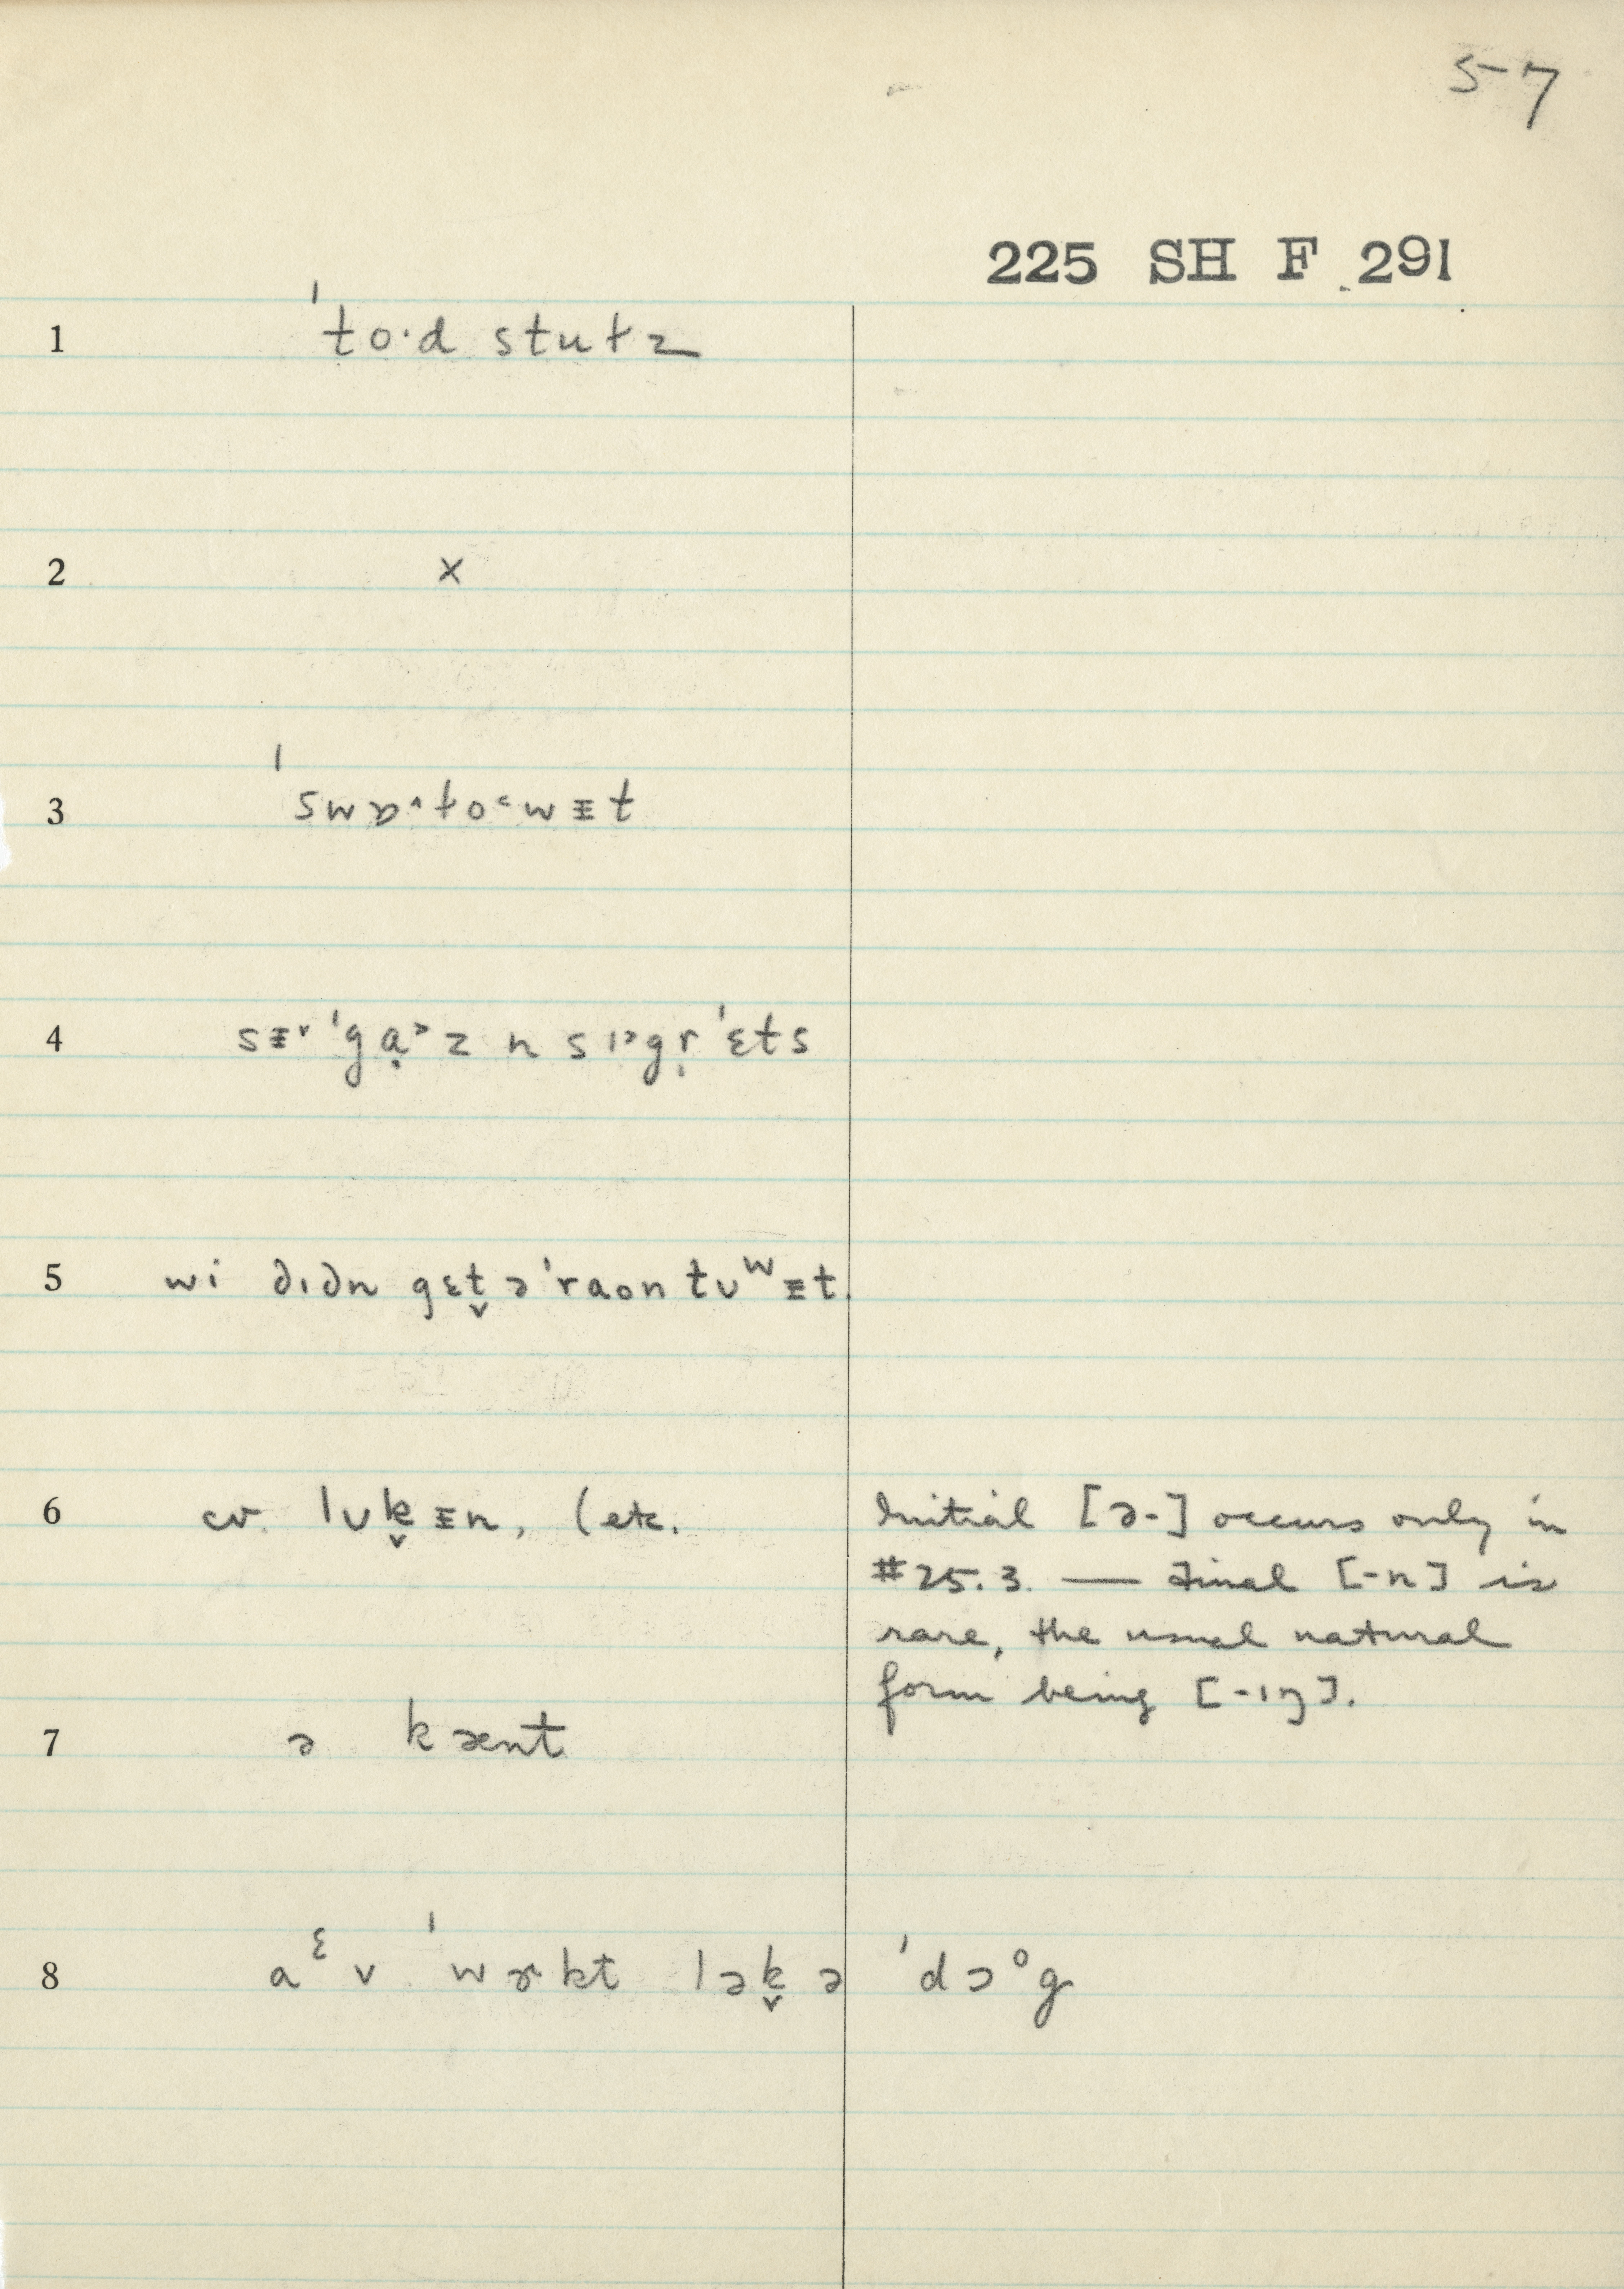 57
225 SH F 291
1 ˈto·d stutz
2 x
3 ˈswɒ^to˂wᵻt
4 sᵻ˅ ˈgạ˃z n sɪ˃gṛˈɛts
5 wi dɪdn gɛt̬ ə ˈraon tʊʷᵻt.
6 cv. lʊk̬ᵻn, (etc.
Initial [ə-] occurs only in
#25.3. — Final [-n] is
rare, the usual natural
form being [-ɪŋ].
7 ə kænt
8 aᵋv ˈwɚkt lək̬ ə ˈdɔᵒg